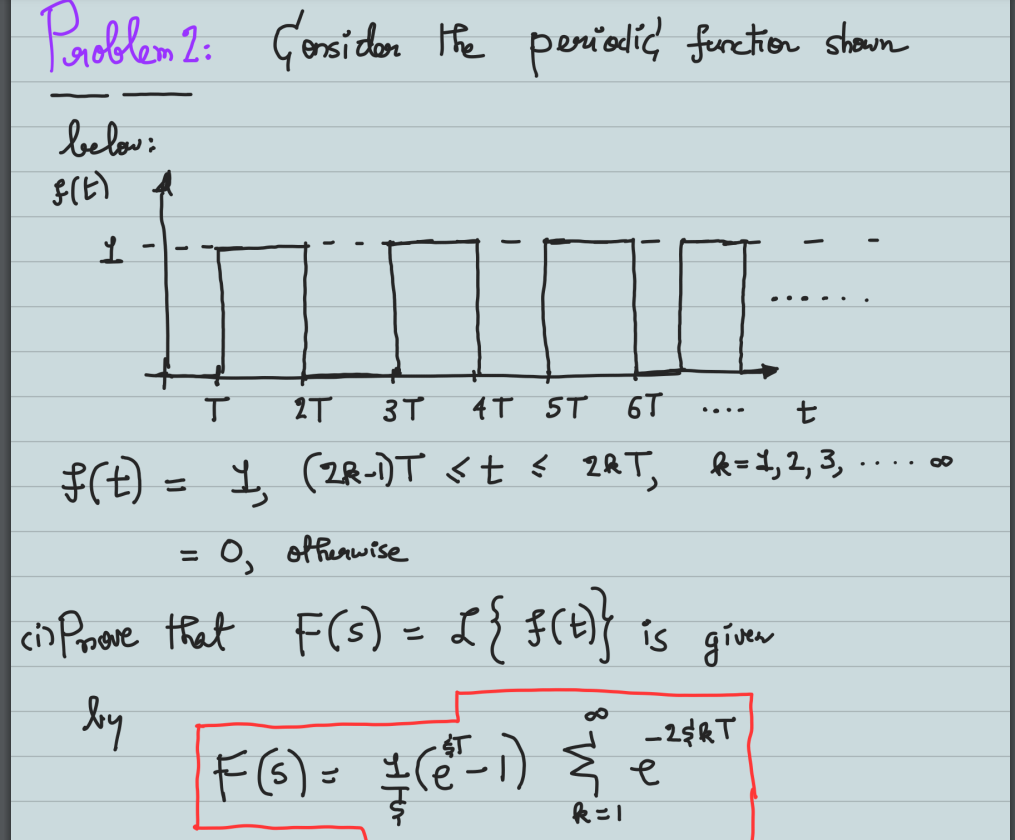 Problem 2: Consider the periodic function shown
below:
f(t)
1
T 2T 3T 4T 5T 6T .... t
f(t) = 1, (2k-1)T ≤ t ≤ 2kT, k=1,2,3, ..... ∞
= 0, otherwise
(i) Prove that F(s) = ℒ{f(t)} is given
by
F(s) = 1/s (e^{sT} - 1) ∑_{k=1}^{∞} e^{-2skT}